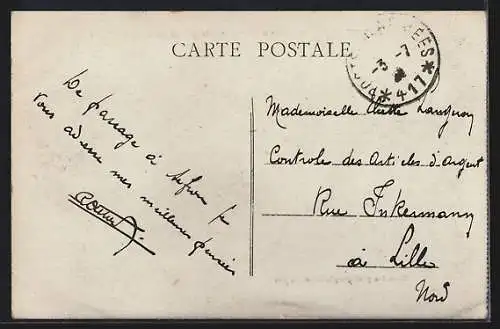 CARTE POSTALE
POSTE AUX ARMEES
3-7
*417*
De passage à
vous adresse mes meilleures pensées
Mademoiselle
Controle des Articles d'Argent
Rue Inkermann
à Lille
Nord